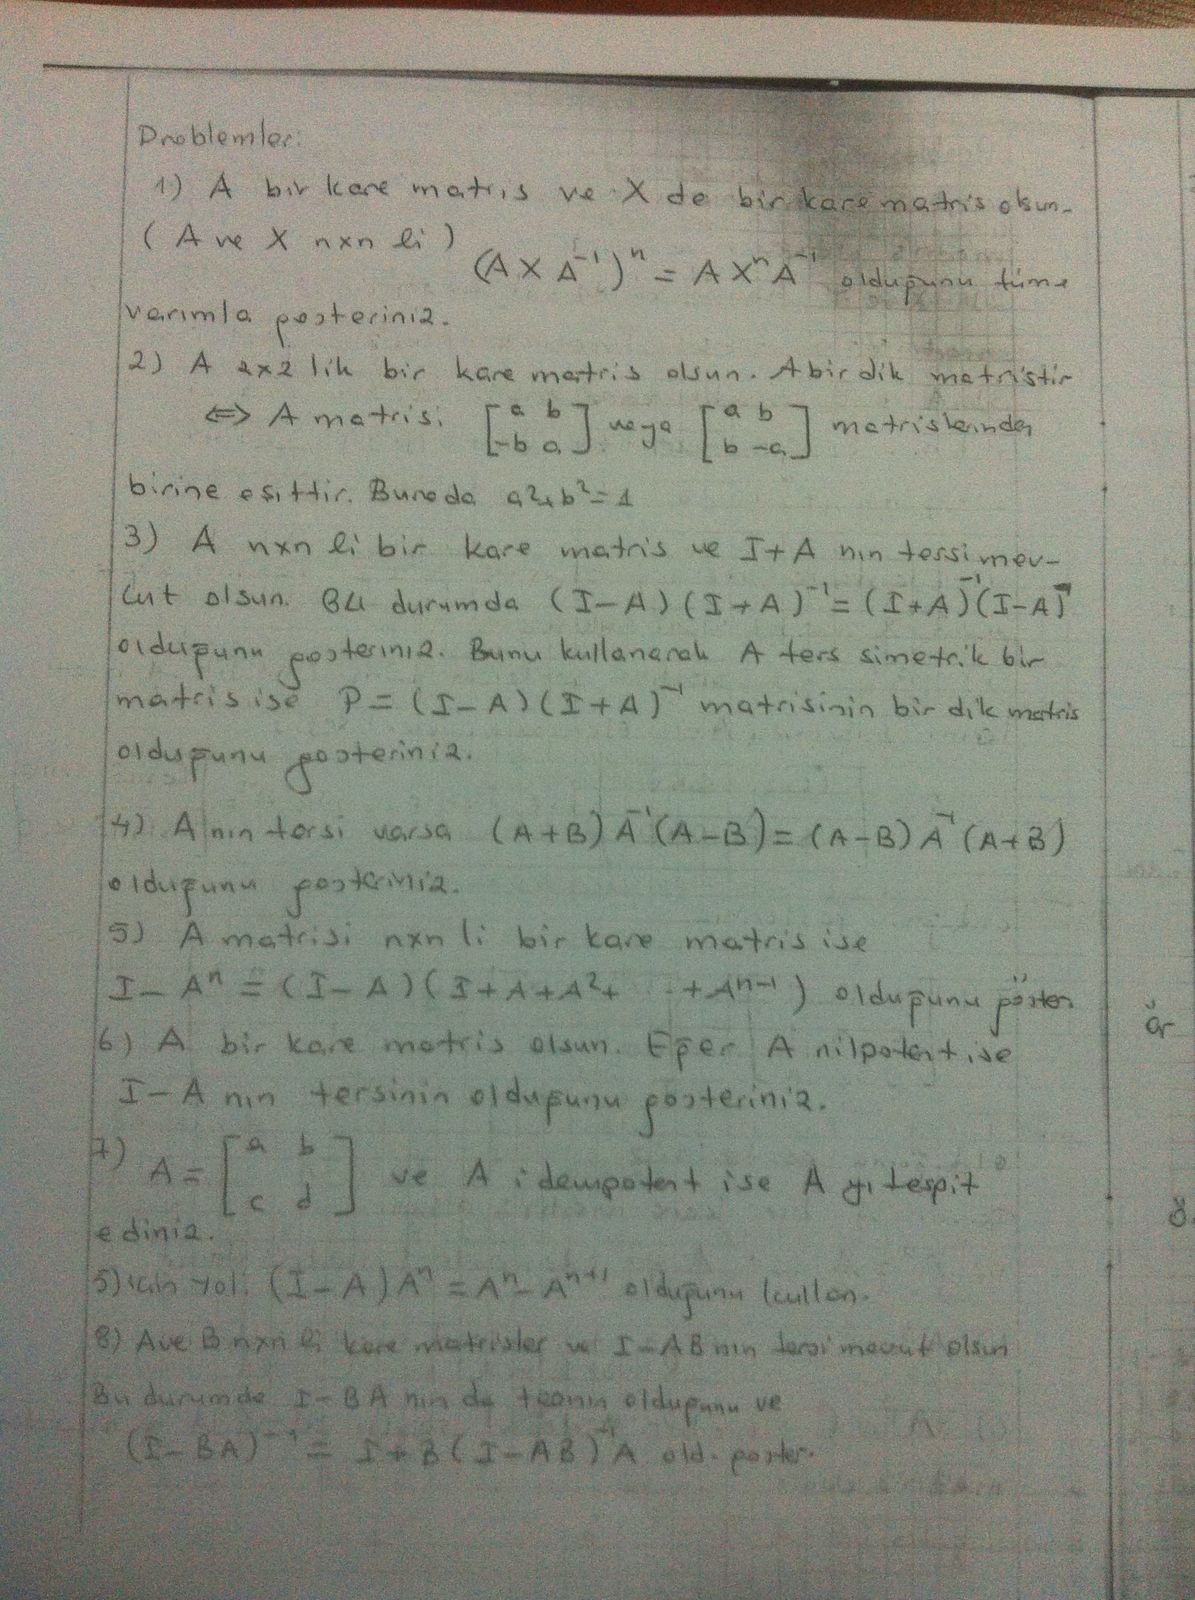 Problemler:
1) A bir kare matris ve X de bir kare matris olsun.
(A ve X nxn li)
(A X A⁻¹)ⁿ = A Xⁿ A⁻¹ olduğunu tüme
varımla gösteriniz.
2) A 2x2 lik bir kare matris olsun. A bir dik matristir
⇔ A matrisi [a b; -b a] veya [a b; b -a] matrislerinden
birine eşittir. Burada a²+b²=1
3) A nxn li bir kare matris ve I+A nın tersi mev-
cut olsun. Bu durumda (I-A)(I+A)⁻¹=(I+A)⁻¹(I-A)
olduğunu gösteriniz. Bunu kullanarak A ters simetrik bir
matris ise P=(I-A)(I+A)⁻¹ matrisinin bir dik matris
olduğunu gösteriniz.
4) A nın tersi varsa (A+B)A⁻¹(A-B)=(A-B)A⁻¹(A+B)
olduğunu gösteriniz.
5) A matrisi nxn li bir kare matris ise
I-Aⁿ=(I-A)(I+A+A²+ ... +Aⁿ⁻¹) olduğunu göster.
6) A bir kare matris olsun. Eğer A nilpotent ise
I-A nın tersinin olduğunu gösteriniz.
7) A=[a b; c d] ve A idempotent ise A yı tespit
ediniz.
5) için yol: (I-A)Aⁿ=Aⁿ-Aⁿ⁺¹ olduğunu kullan.
8) A ve B nxn li kare matrisler ve I-AB nin tersi mevcut olsun
Bu durumda I-BA nın da tersinin olduğunu ve
(I-BA)⁻¹ = I+B(I-AB)⁻¹A old. göster.